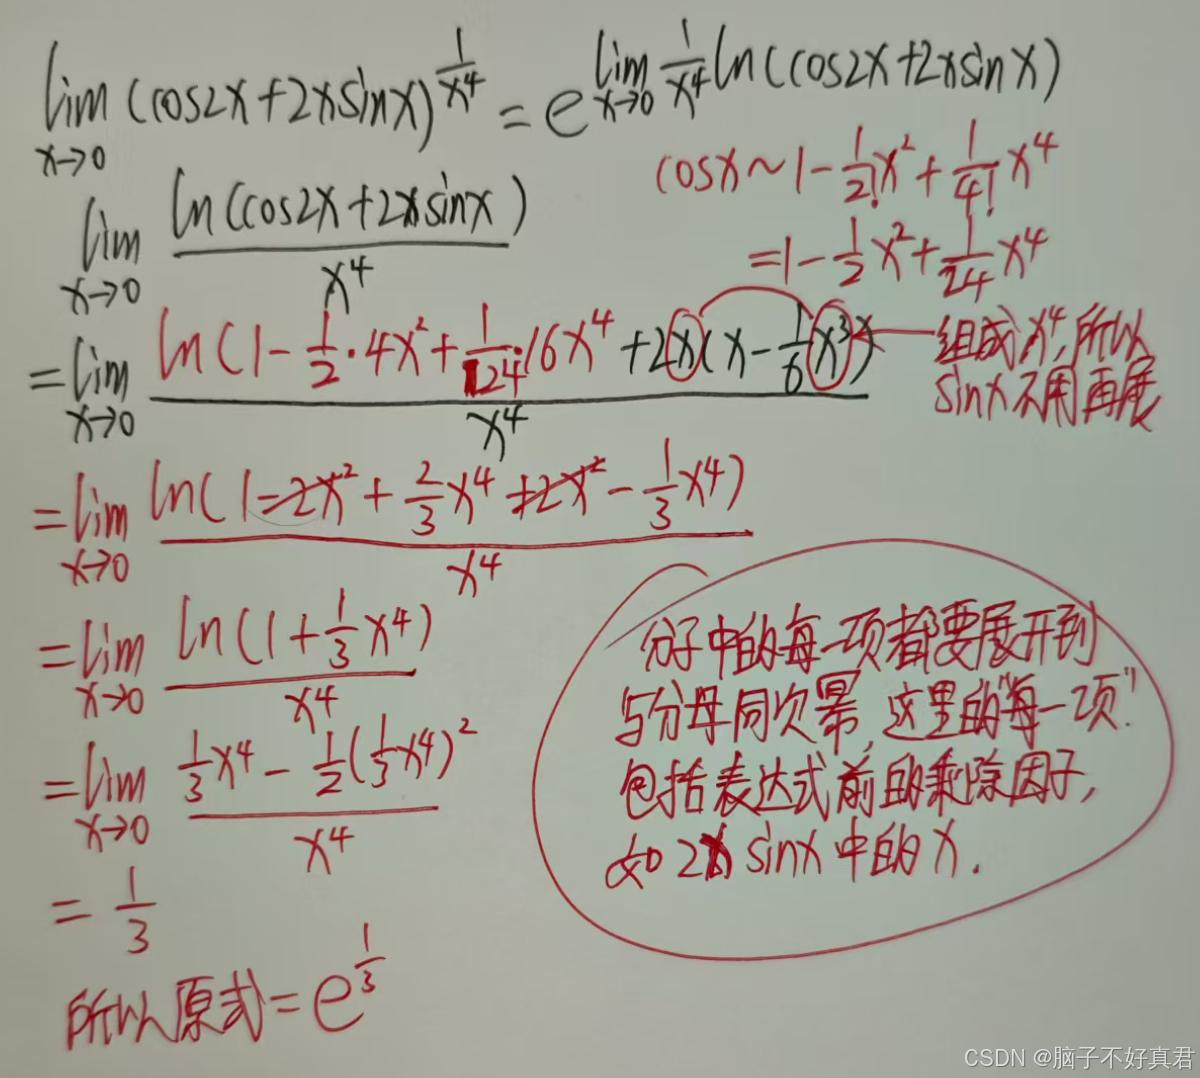 lim x→0 (cos2x+2xsinx)^(1/x⁴) = e^(lim x→0 1/x⁴ ln(cos2x+2xsinx))
cosx～1-1/2!x²+1/4!x⁴
=1-1/2x²+1/24x⁴
lim x→0 ln(cos2x+2xsinx)/x⁴
=lim x→0 ln(1-1/2·4x²+1/24·16x⁴+2x(x-1/6x³))/x⁴
组成x⁴,所以
sinx不用再展
=lim x→0 ln(1-2x²+2/3x⁴+2x²-1/3x⁴)/x⁴
=lim x→0 ln(1+1/3x⁴)/x⁴
=lim x→0 (1/3x⁴-1/2(1/3x⁴)²)/x⁴
=1/3
所以原式=e^(1/3)
分子中的每一项都要展开到
与分母同次幂,这里的"每一项"
包括表达式前的乘除因子,
如2xsinx中的x.
CSDN @脑子不好真君